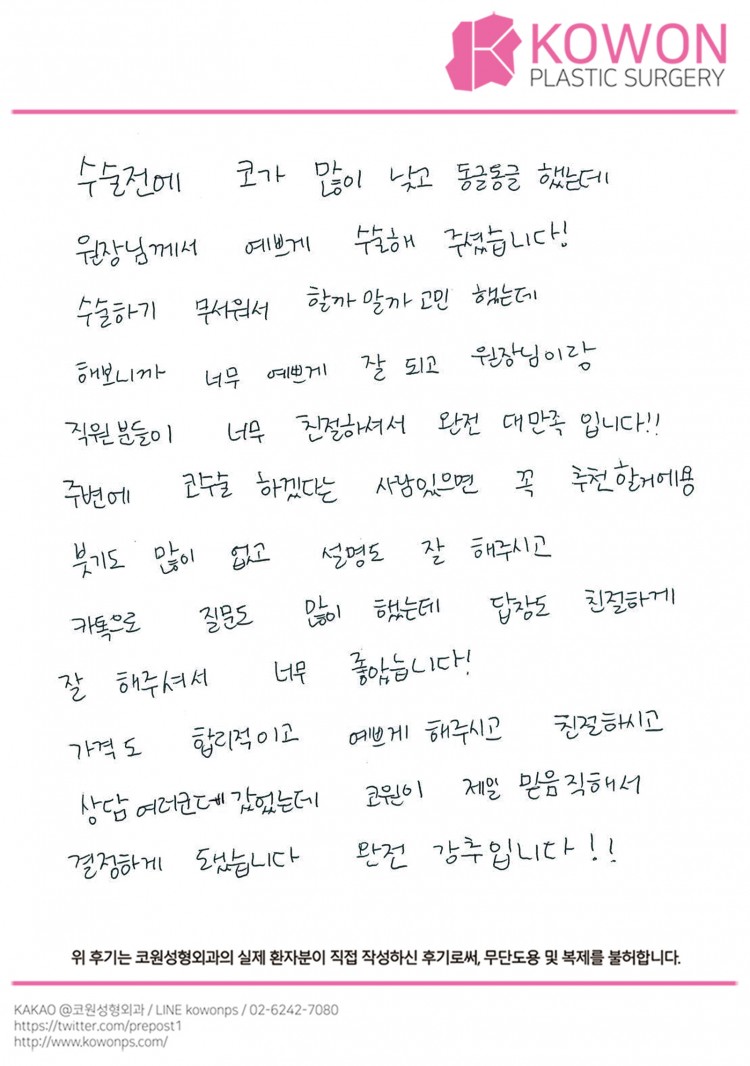 KOWON
PLASTIC SURGERY
수술전에 코가 많이 낮고 동글동글 했는데
원장님께서 예쁘게 수술해 주셨습니다!
수술하기 무서워서 할까말까고민 했는데
해보니까 너무 예쁘게 잘 되고 원장님이랑
직원분들이 너무 친절하셔서 완전 대만족입니다!!
주변에 코수술 하겠다는 사람있으면 꼭 추천할거에용
붓기도 많이 없고 설명도 잘 해주시고
카톡으로 질문도 많이 했는데 답장도 친절하게
잘 해주셔서 너무 좋았습니다!
가격도 합리적이고 예쁘게 해주시고 친절하시고
상담 여러군데 갔었는데 코원이 제일 믿음직해서
결정하게 됐습니다 완전 강추입니다!!
위 후기는 코원성형외과의 실제 환자분이 직접 작성하신 후기로써, 무단도용 및 복제를 불허합니다.
KAKAO @코원성형외과 / LINE kowonps / 02-6242-7080
https://twitter.com/prepost1
http://www.kowonps.com/